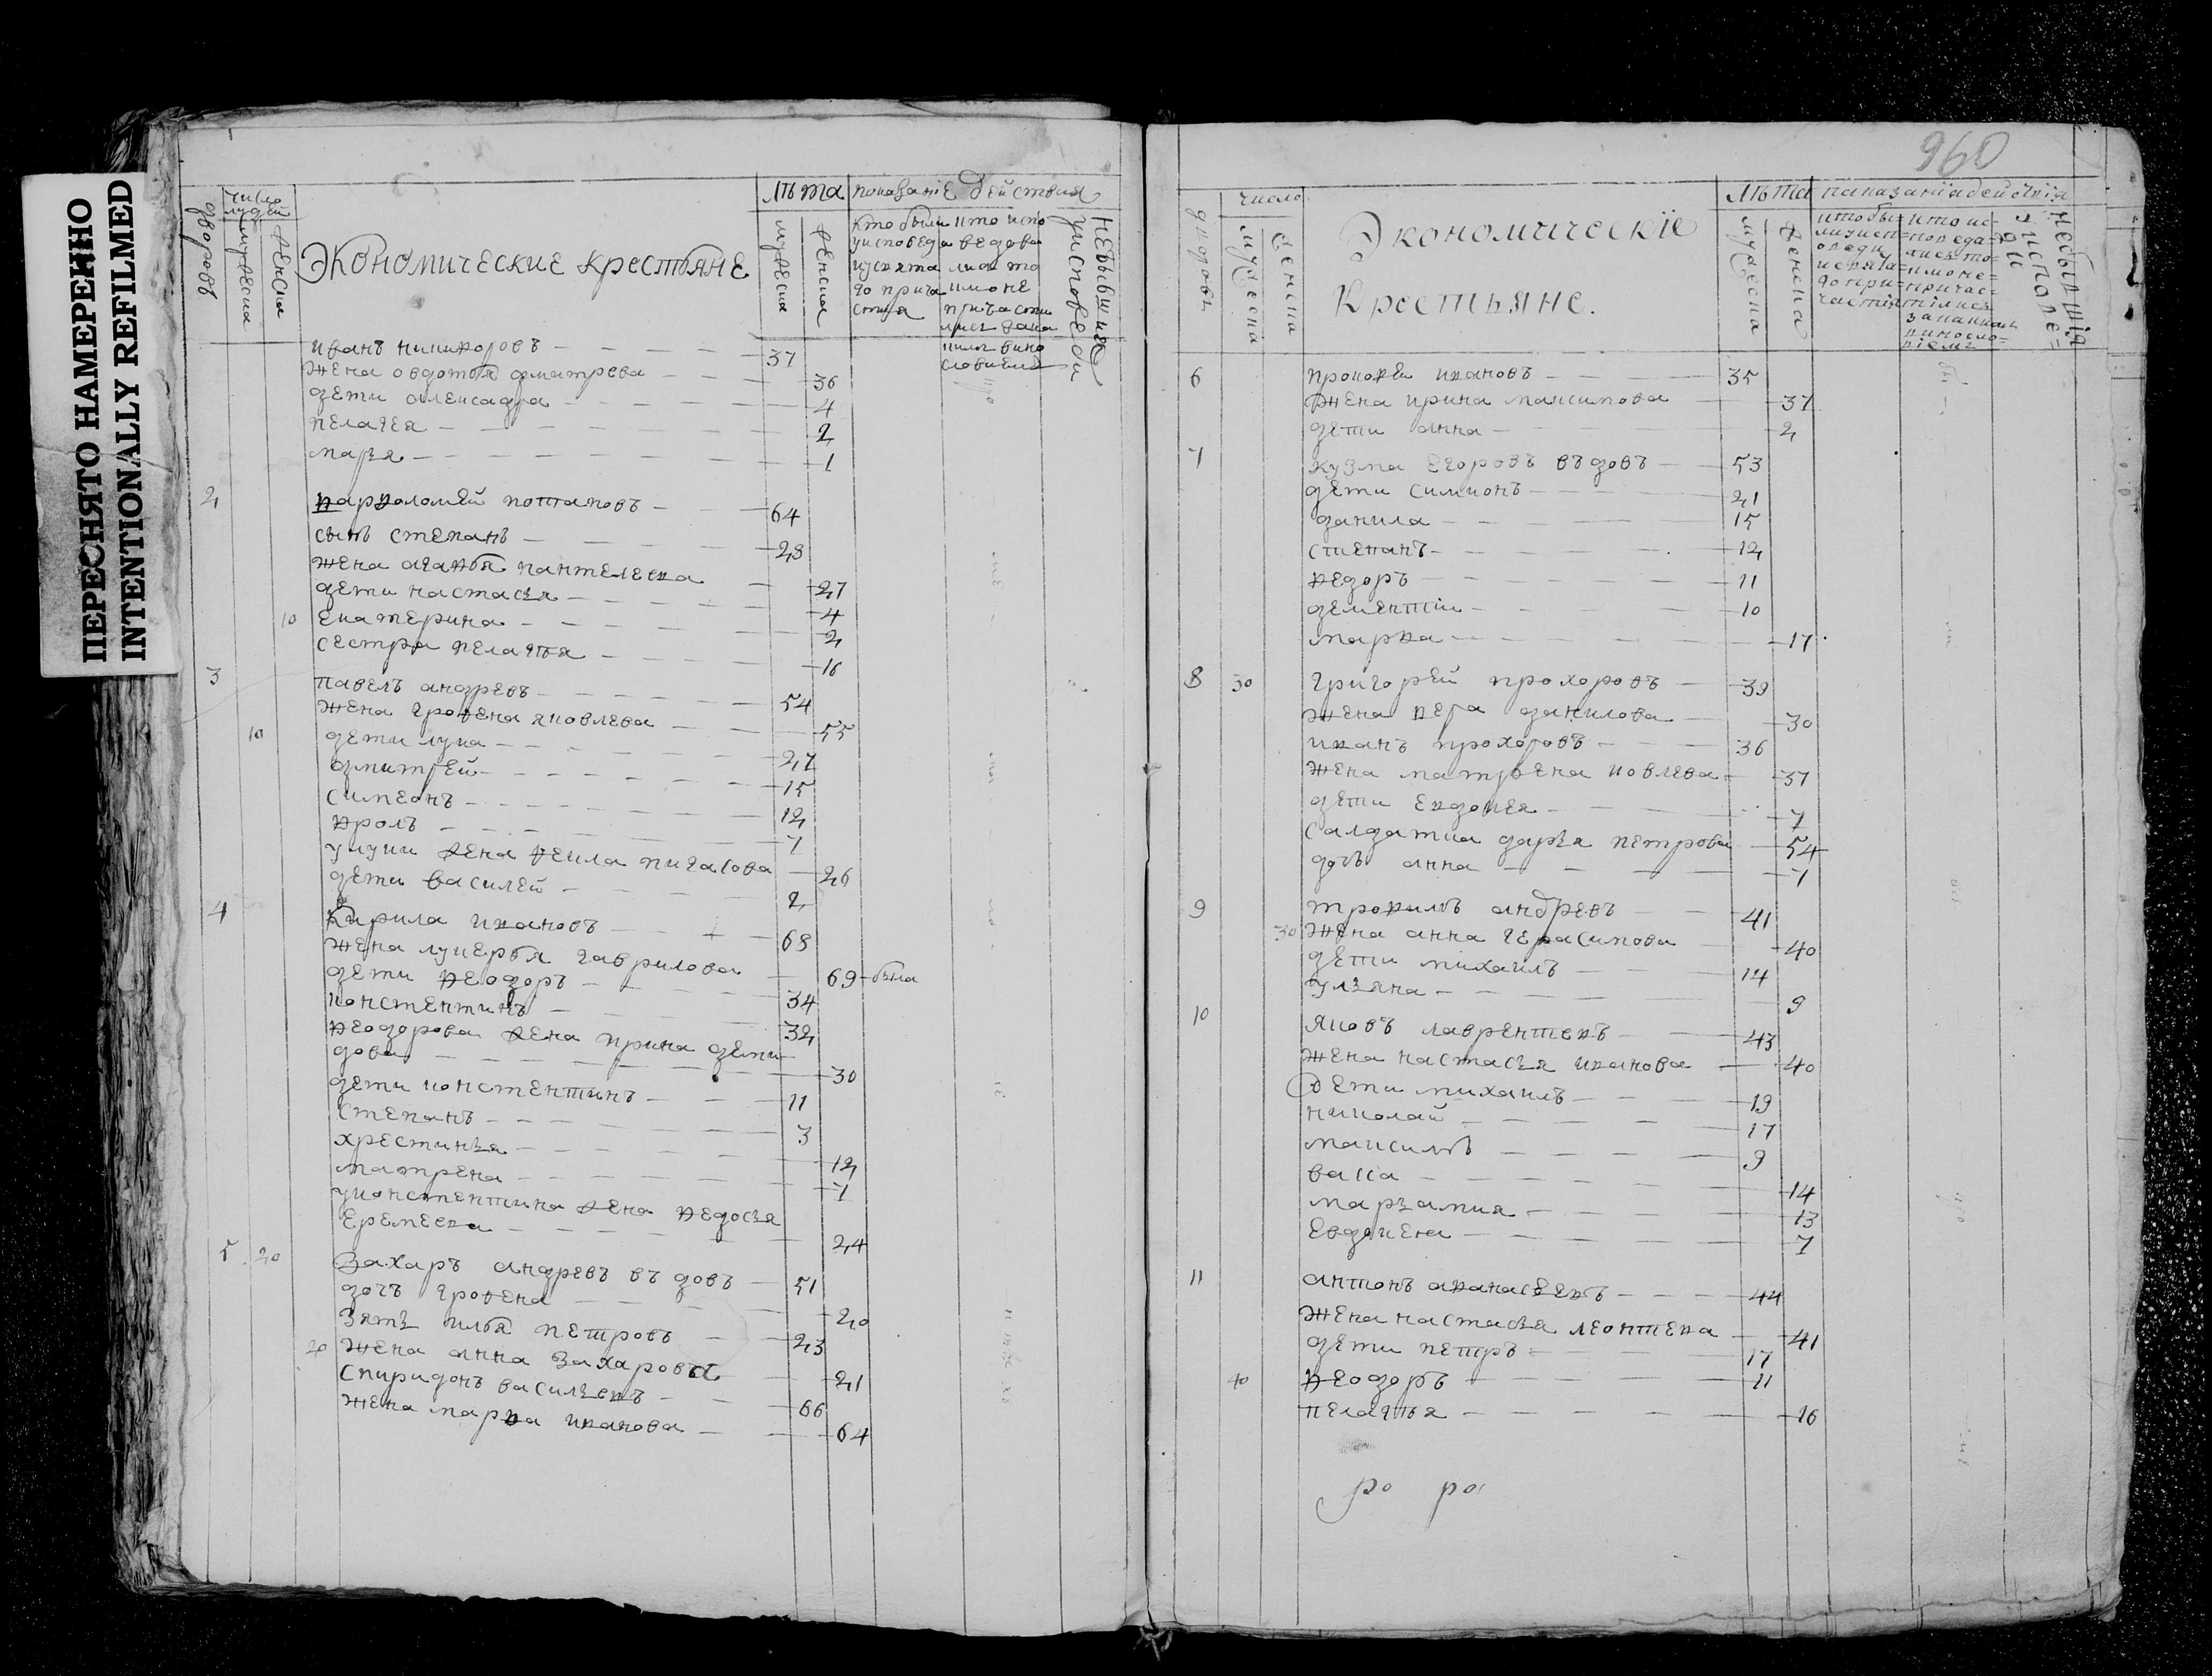 ПЕРЕСНЯТО НАМЕРЕННО
INTENTIONALLY REFILMED
дворовъ
число людей
мужеска
женска
Экономические крестьяне
лѣта
мужеска
женска
показание действия
кто были у исповеди и у святаго причастия
кто исповедовались а то
или не
причасти
небывшия у исповеди
иванъ никифоровъ 37
жена овдотья дмитрева 36
дети александра 4
пелагея 2
марья 1
2 варфоломей потаповъ 64
сынъ степанъ 28
жена агафья пантелеева 27
дети настасья 4
10 екатерина 2
сестра пелагѣя 16
3 павелъ андревъ 54
жена грофена яковлева 55
10 дети лука 27
дмитрей 15
симеонъ 12
фролъ 7
у луки жена фекла пигасова 26
дети василей 2
4 Кирила ивановъ 68
жена лукерья гаврилова 69 была
дети феодоръ 34
констентинъ 32
феодорова жена ирина деми
дова 30
дети констентинъ 11
степанъ 3
хрестинья 12
матрена 7
у констентина жена федосья
еремеева 24
5 20 Захаръ андревъ въ довъ 51
дочъ грофена 20
зять илья петровъ 23
20 жена анна захарова 21
спиридонъ васильевъ 66
жена марфа иванова 64
960
дворовъ
число
мужеска
женска
Экономическïе
Крестьяне.
лѣта
мужеска
женска
паказанïя действïя
небывшïя у исповеди
6 прокофей ивановъ 35
жена ирина максимова 37
дети анна 2
7 кузма егоровъ въ довъ 53
дети симионъ 21
данила 15
степанъ 12
федоръ 11
дементïи 10
марфа 17
8 30 григорей прохоровъ 39
жена вера данилова 30
иванъ прохоровъ 36
жена матрена иовлева 37
дети евдокея 7
салдатка дарья петрова 54
дочь анна 7
9 трофимъ андревъ 41
30 жена анна герасимова 40
дети михаилъ 14
ульяна 9
10 яковъ лаврентевъ 43
жена настасья иванова 40
дети михаилъ 19
николай 17
максимъ 9
васса 14
марьамия 13
евдокена 7
11 антонъ афанасеевъ 44
жена настасья леонтева 41
дети петръ 17
40 феодоръ 11
пелагѣя 16
ро ро